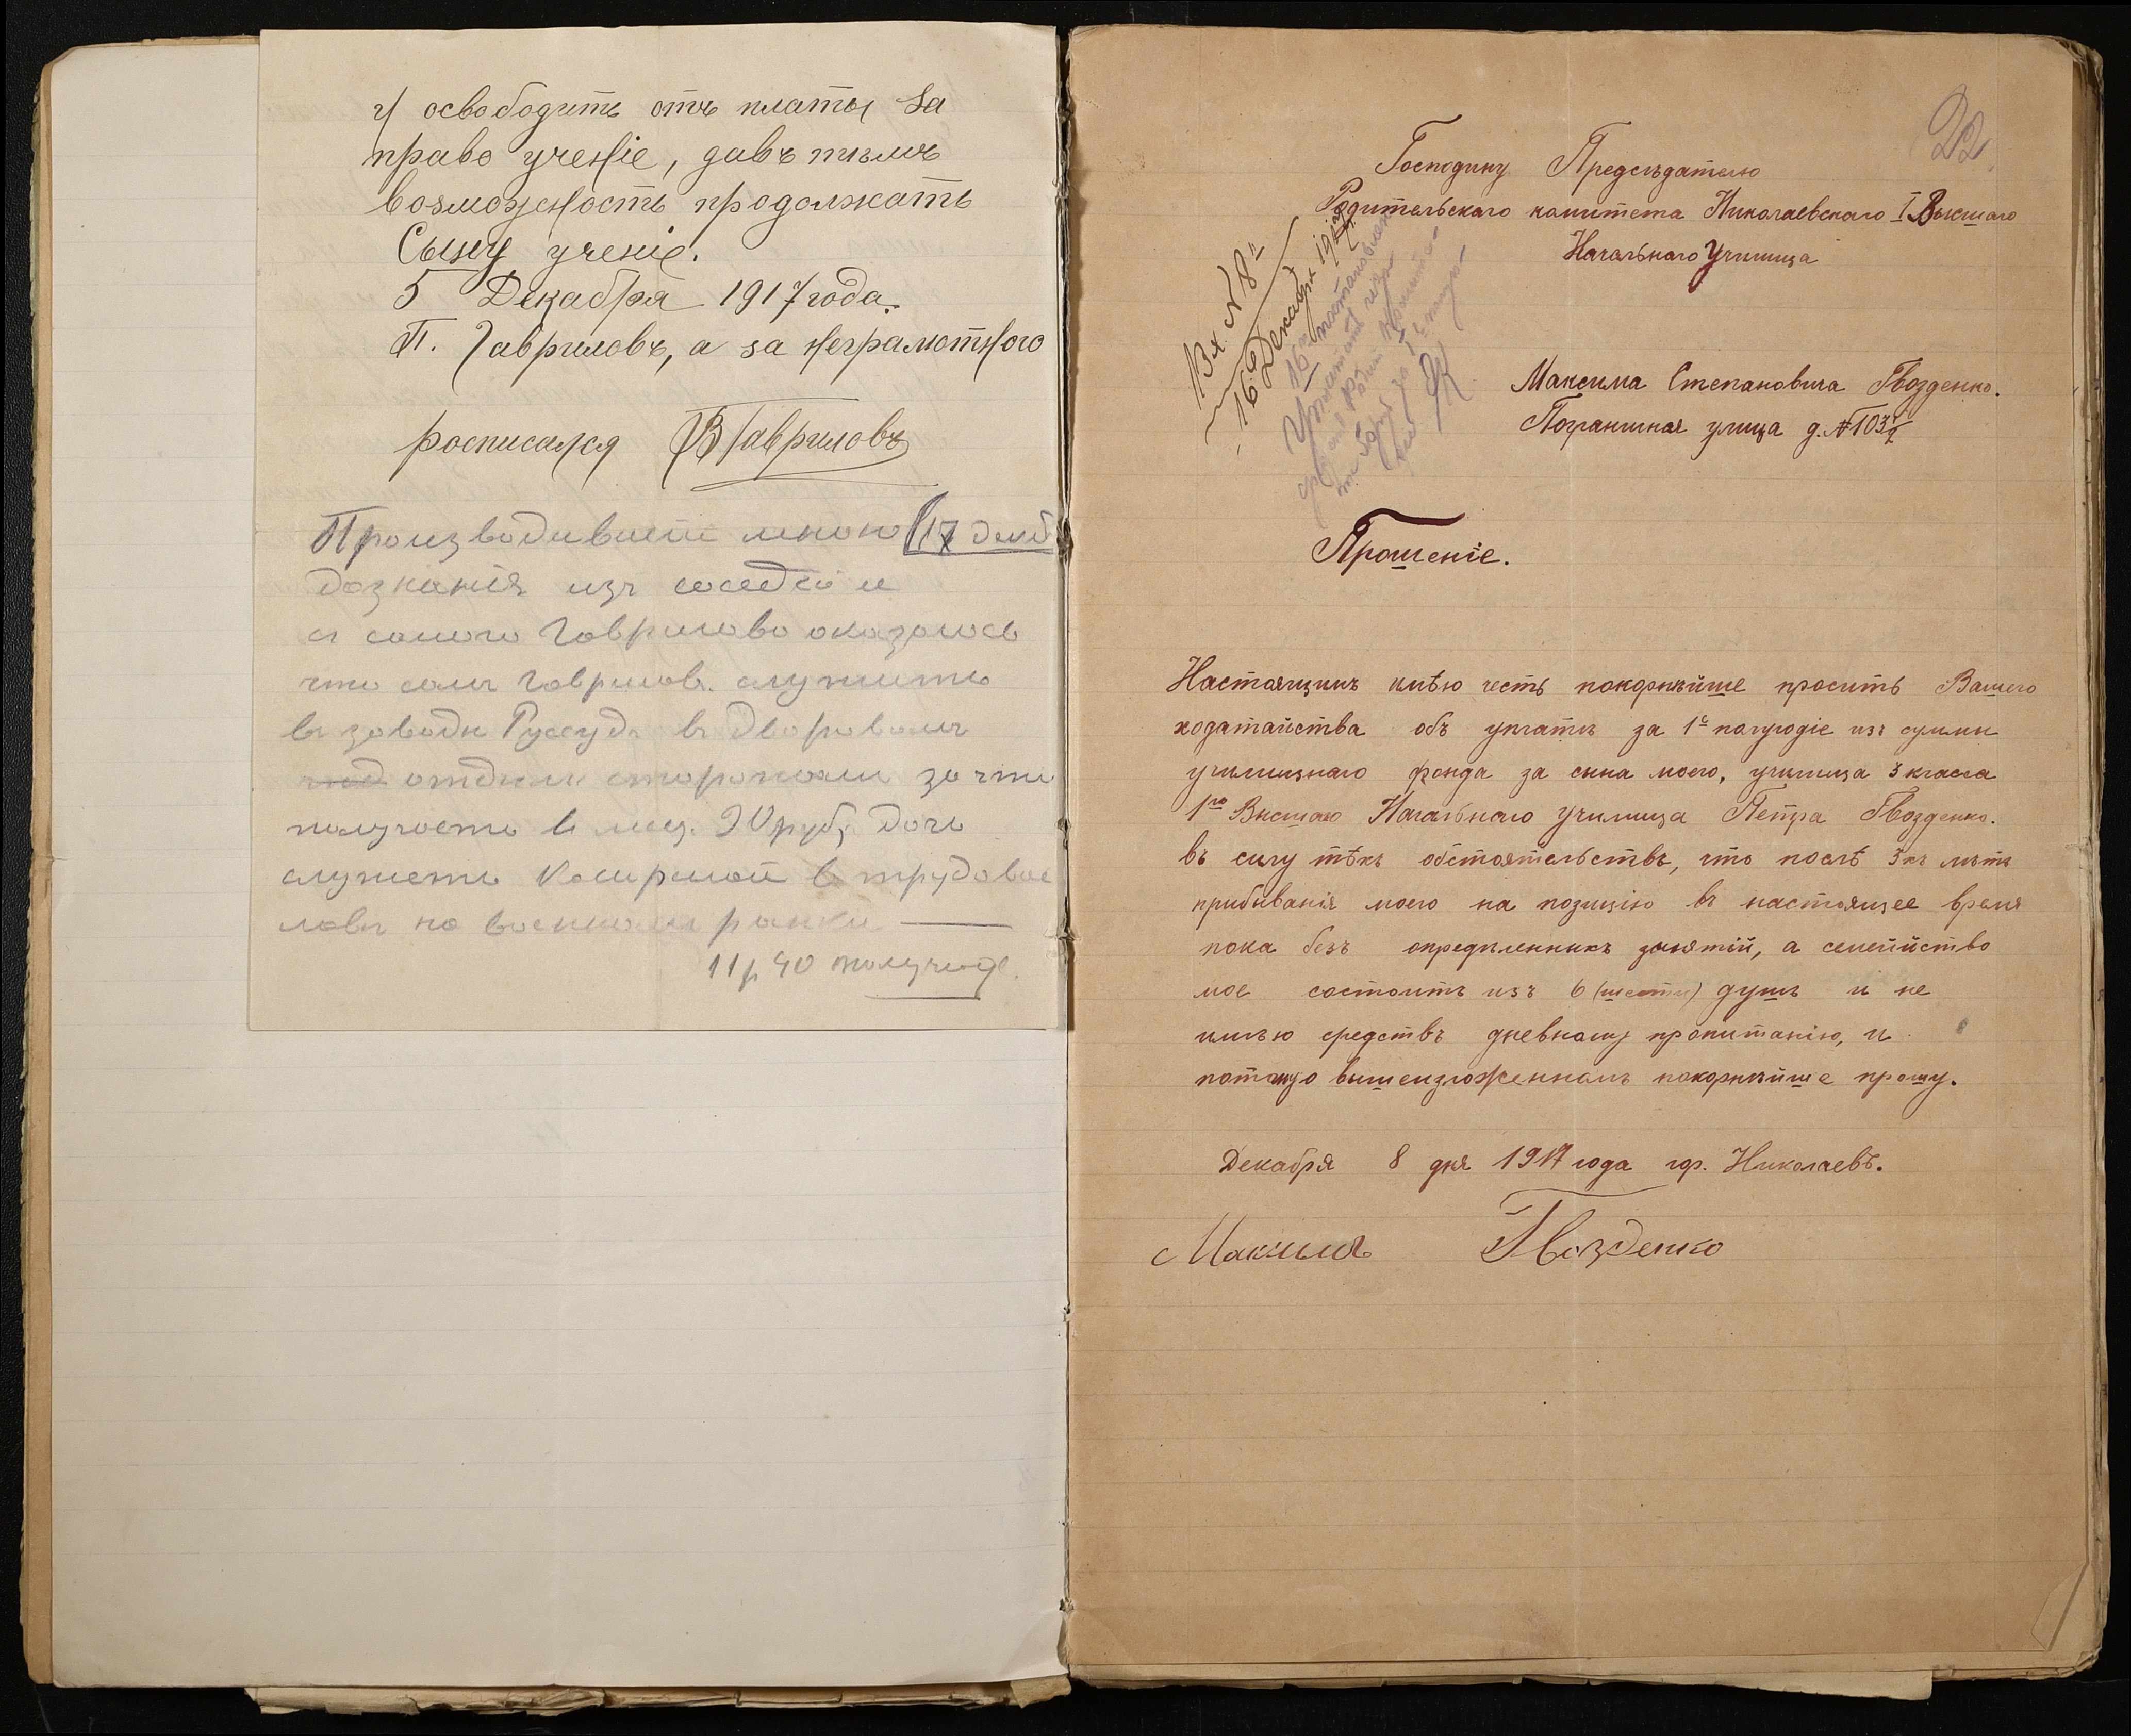 г) освободить отъ платы за
право ученіе, давъ тѣмъ
возможность продолжать
Сыну ученіе.
5 Декабря 1917 года.
П. Гавриловъ, а за неграмотного
росписался В Гавриловъ
Производившей мною 17 декб
дознанія изъ соседей и
съ самого Гаврилова оказалось
что самъ Гаврилов. служить
въ заводе Руссуд въ дворовомъ
отделе сторожом за что
получаетъ в мес. 90 руб. дочь
служеть касиршой в трудовие
лавк на военном ринки
11 р 40 полугод.
22
Господину Предсѣдателю
Родительскаго комитета Николаевскаго I Высшаго
Начальнаго Училища
Вх. № 8
16 Декабря 1917
16 постановлен
Уплатить
Максима Степановича Гвозденко.
Пограничная улица д. № 103
Прошеніе.
Настоящимъ имѣю честь покорнѣйше просить Вашего
ходатайства объ уплатѣ за 1е полугодіе изъ суммы
училищнаго фонда за сына моего, училища 3 класса
1го Высшаго Начальнаго Училища Петра Гвозденко.
въ силу тѣхъ обстоятельствъ, что послѣ 3хъ лѣтъ
прибыванія моего на позицію въ настоящее время
пока безъ опредѣленныхъ занятій, а семейство
мое состоитъ изъ 6 (шести) душъ и не
имѣю средствъ дневному пропитанію, и
потому о вышеизложенномъ покорнѣйше прошу.
Декабря 8 дня 1917 года гор. Николаевъ.
Максимъ Гвозденко